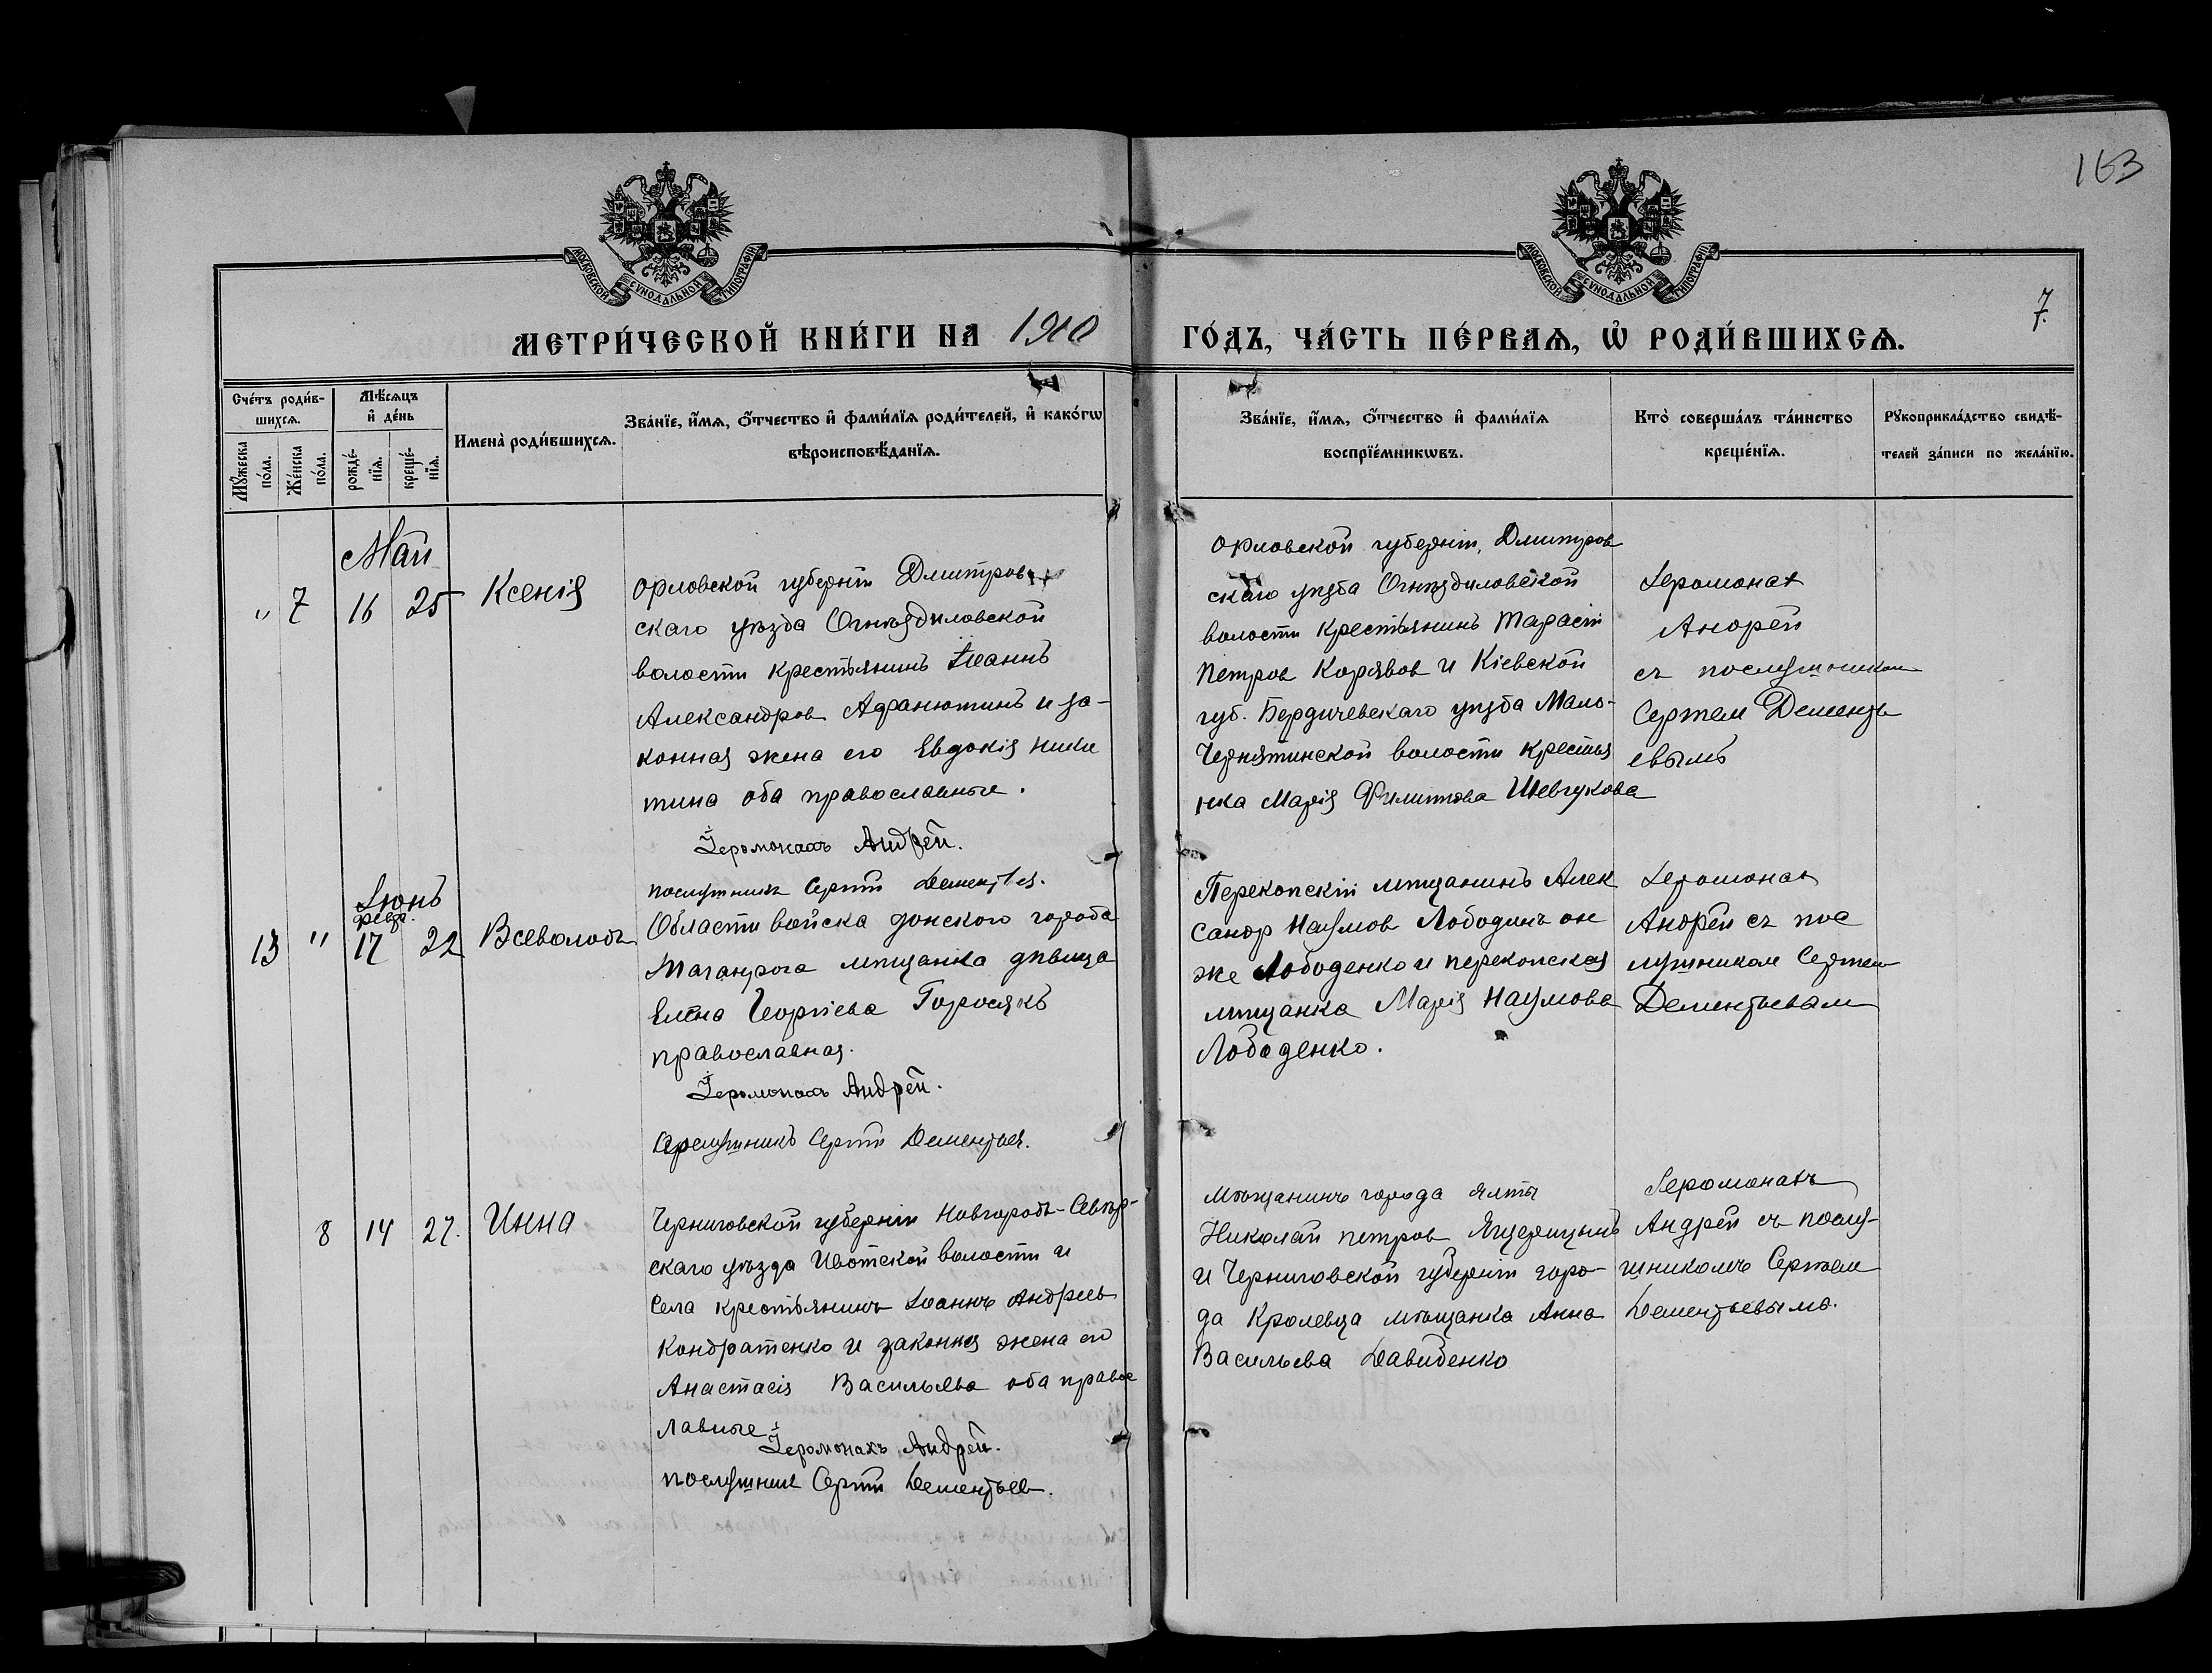 163
7.
МОСКОВСКОЙ СѴНОДАЛЬНОЙ ТИПОГРАФІИ
МОСКОВСКОЙ СѴНОДАЛЬНОЙ ТИПОГРАФІИ
МЕТРИ́ЧЕСКОЙ КНИ́ГИ НА 1910 ГО́ДЪ, ЧА́СТЬ ПЕ́РВАѦ, Ѡ҆ РОДИ́ВШИХСѦ.
Сче́тъ роди́в-
шихсѧ.
Мꙋ́жеска по́ла.
Же́нска по́ла.
Мѣ́сѧцъ
и҆ де́нь
рожде́-
нїѧ.
креще́-
нїѧ.
Имена̀ роди́вшихсѧ.
Зва́нїе, и҆́мѧ, ѻ҆́тчество и҆ фами́лїѧ роди́телей, и҆ како́гѡ
вѣроисповѣ́данїѧ.
Зва́нїе, и҆́мѧ, ѻ҆́тчество и҆ фами́лїѧ
воспрїе́мникѡвъ.
Кто̀ соверша́лъ та́инство
креще́нїѧ.
Рꙋкоприкла́дство свидѣ́-
телей за́писи по жела́нїю.
Май
" 7 16 25 Ксенія
Орловской губерніи Дмитров-
скаго уѣзда Огнѣдиловской
волости крестьянинъ Іоаннъ
Александров Афанютинъ и за-
конная жена его Евдокія Ники
тина оба православные.
Іеромонахъ Андрей.
послушникъ Сергій Дементьев.
Орловской губерніи, Дмитров
скаго уѣзда Огнѣдиловской
волости крестьянинъ Тарасій
Петров Корявов и Кіевской
губ. Бердичевскаго уѣзда Мало-
Чернятинской волости крестья
нка Марія Филиппова Шевчукова
Іеромонах
Андрей
съ послушником
Сергіем Дементь
евымъ
Іюнь
февр.
13 " 17 22 Всеволодъ
Области войска донского города
Таганрога мѣщанка дѣвица
Елена Георгіева
православная.
Іеромонахъ Андрей.
послушникъ Сергій Дементьев.
Перекопскій мѣщанинъ Алек
сандр Наумов Лободинъ он
же Лободенко и перекопская
мѣщанка Марія Наумова
Лободенко.
Іеромонах
Андрей съ пос
лушником Сергіем
Дементьевым
8 14 27. Инна
Черниговской губерніи Новгородъ-Сѣвер-
скаго уѣзда Ивотской волости и
села крестьянинъ Іоаннъ Андреев
Кондратенко и законная жена его
Анастасія Васильева оба правос
лавные.
Іеромонахъ Андрей.
послушник Сергій Дементьев.
Мѣщанинъ города Ялты
Николай петров
и Черниговской губерніи горо-
да Кролевца мѣщанка Анна
Васильева Давиденко
Іеромонахъ
Андрей съ послу-
шникомъ Сергіем
Дементьевымъ.